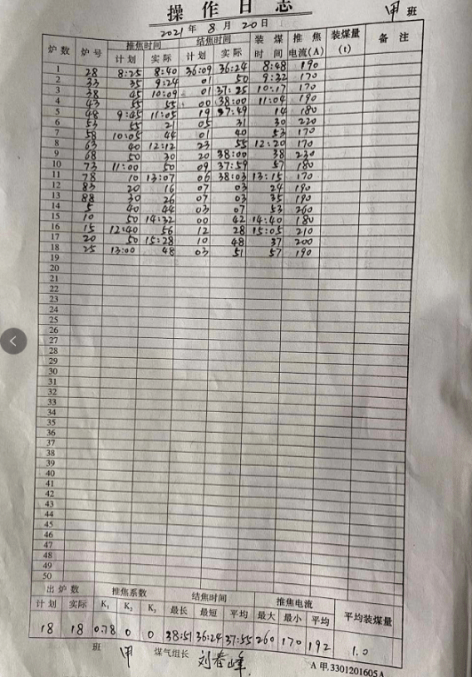 操 作 日 志
甲 班
2021 年 8 月 20 日
炉数 炉号 推焦时间 结焦时间 装煤时间 推焦电流(A) 装煤量(t) 备 注
计划 实际 计划 实际
1 28 8:25 8:40 36:09 36:24 8:48 190
2 33 35 9:24 01 50 9:32 170
3 38 45 10:09 01 37:25 10:17 170
4 43 55 55 00 38:00 11:04 190
5 48 9:45 11:05 19 37:49 14 180
6 53 55 21 05 31 30 220
7 58 10:05 44 01 40 53 170
8 63 40 12:12 23 55 12:20 170
9 68 50 30 20 38:00 38 230
10 73 11:00 50 09 37:59 57 180
11 78 10 13:07 06 38:03 13:15 170
12 83 20 16 07 03 24 190
13 88 30 26 07 03 35 190
14 5 40 44 03 07 53 260
15 10 50 14:32 00 42 14:40 180
16 15 12:40 56 12 28 15:05 210
17 20 50 15:28 10 48 37 200
18 25 13:00 48 03 51 57 190
19
20
21
22
23
24
25
26
27
28
29
30
31
32
33
34
35
36
37
38
39
40
41
42
43
44
45
46
47
48
49
50
出 炉 数 推焦系数 结焦时间 推焦电流 平均装煤量
计划 实际 K₁ K₂ K₃ 最长 最短 平均 最大 最小 平均
18 18 0.78 0 0 38:51 36:24 37:55 260 170 192 1.0
班 甲 煤气组长 刘春峰
A 甲.3301201605A